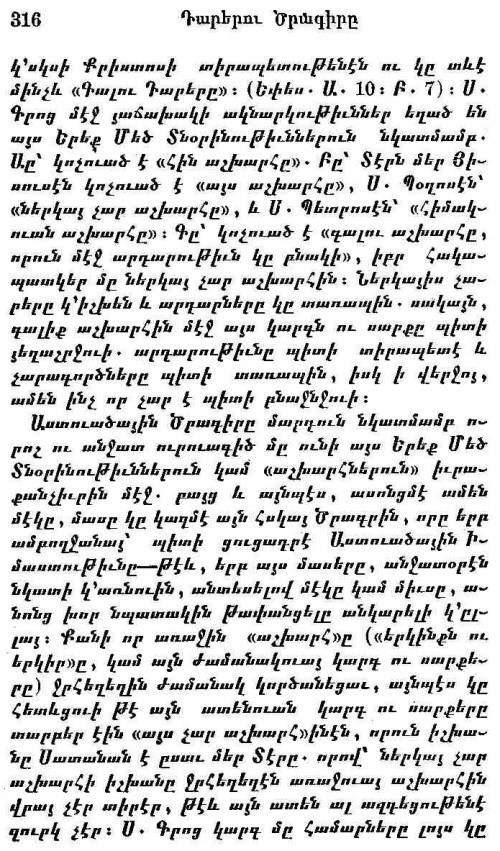 316 Դարերու Ծրագիրը
կ՚սկսի Քրիստոսի տիրապետութենէն ու կը տևէ
մինչև «Գալու Դարերը»։ (Եփես. Ա. 10։ Բ. 7)։ Ս.
Գրոց մէջ յաճախակի ակնարկութիւններ եղած են
այս Երեք Մեծ Տնօրինութիւններուն նկատմամբ.
Աը՝ կոչուած է «հին աշխարհը». Բը՝ Տէրն մեր Յի-
սուսէն կոչուած է «այս աշխարհը», Ս. Պօղոսէն՝
«ներկայ չար աշխարհը», և Ս. Պետրոսէն՝ «հիմակ-
ուան աշխարհը»։ Գը՝ կոչուած է «գալու աշխարհը,
որուն մէջ արդարութիւն կը բնակի», իբր հակա-
պատկեր մը ներկայ չար աշխարհին։ Ներկայիս չա-
րերը կ՚իշխեն և արդարները կը տառապին. սակայն,
գալիք աշխարհին մէջ այս կարգն ու սարքը պիտի
յեղաշրջուի. արդարութիւնը պիտի տիրապետէ և
չարագործները պիտի տառապին, իսկ ի վերջոյ,
ամեն ինչ որ չար է պիտի բնաջնջուի։
Աստուածային Ծրագիրը մարդուն նկատմամբ ո-
րոշ ու անջատ ուրուագիծ մը ունի այս Երեք Մեծ
Տնօրինութիւններուն կամ «աշխարհներուն» իւրա-
քանչիւրին մէջ. բայց և այնպէս, ասոնցմէ ամեն
մէկը, մասը կը կազմէ այն Հսկայ Ծրագրին, որը երբ
ամբողջանայ՝ պիտի ցուցադրէ Աստուածային Ի-
մաստութիւնը—թէև, երբ այս մասերը, անջատօրէն
նկատի կ՚առնուին, անտեսելով մէկը կամ միւսը, ա-
նոնց խոր նպատակին թափանցելը անկարելի կ՚ըլ-
լայ։ Քանի որ առաջին «աշխարհ»ը («երկինքն ու
երկիր»ը, կամ այն ժամանակուայ կարգ ու սարքե-
րը) ջրհեղեղին ժամանակ կործանեցաւ, այնպէս կը
հետևցուի թէ այն ատենուան կարգ ու սարքերը
տարբեր էին «այս չար աշխարհ»ինէն, որուն իշխա-
նը Սատանան է ըսաւ մեր Տէրը. որով՝ ներկայ չար
աշխարհի իշխանը ջրհեղեղէն առաջուայ աշխարհին
վրայ չէր տիրէր, թէև այն ատեն ալ ազդեցութենէ
զուրկ չէր։ Ս. Գրոց կարգ մը համարները լոյս կը